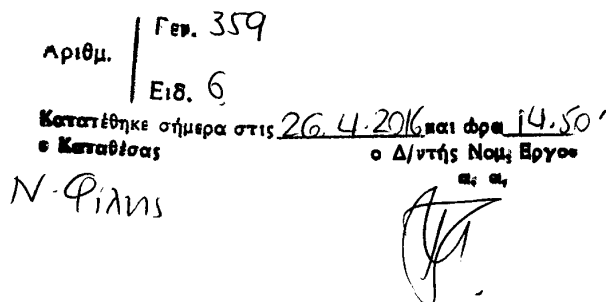 Αριθμ.
Γεν. 359
Ειδ. 6
Κατατέθηκε σήμερα στις 26.4.2016 και ώρα 14.50'
ο Καταθέσας
ο Δ/ντής Νομ. Εργου
α. α.
Ν. Φίλης